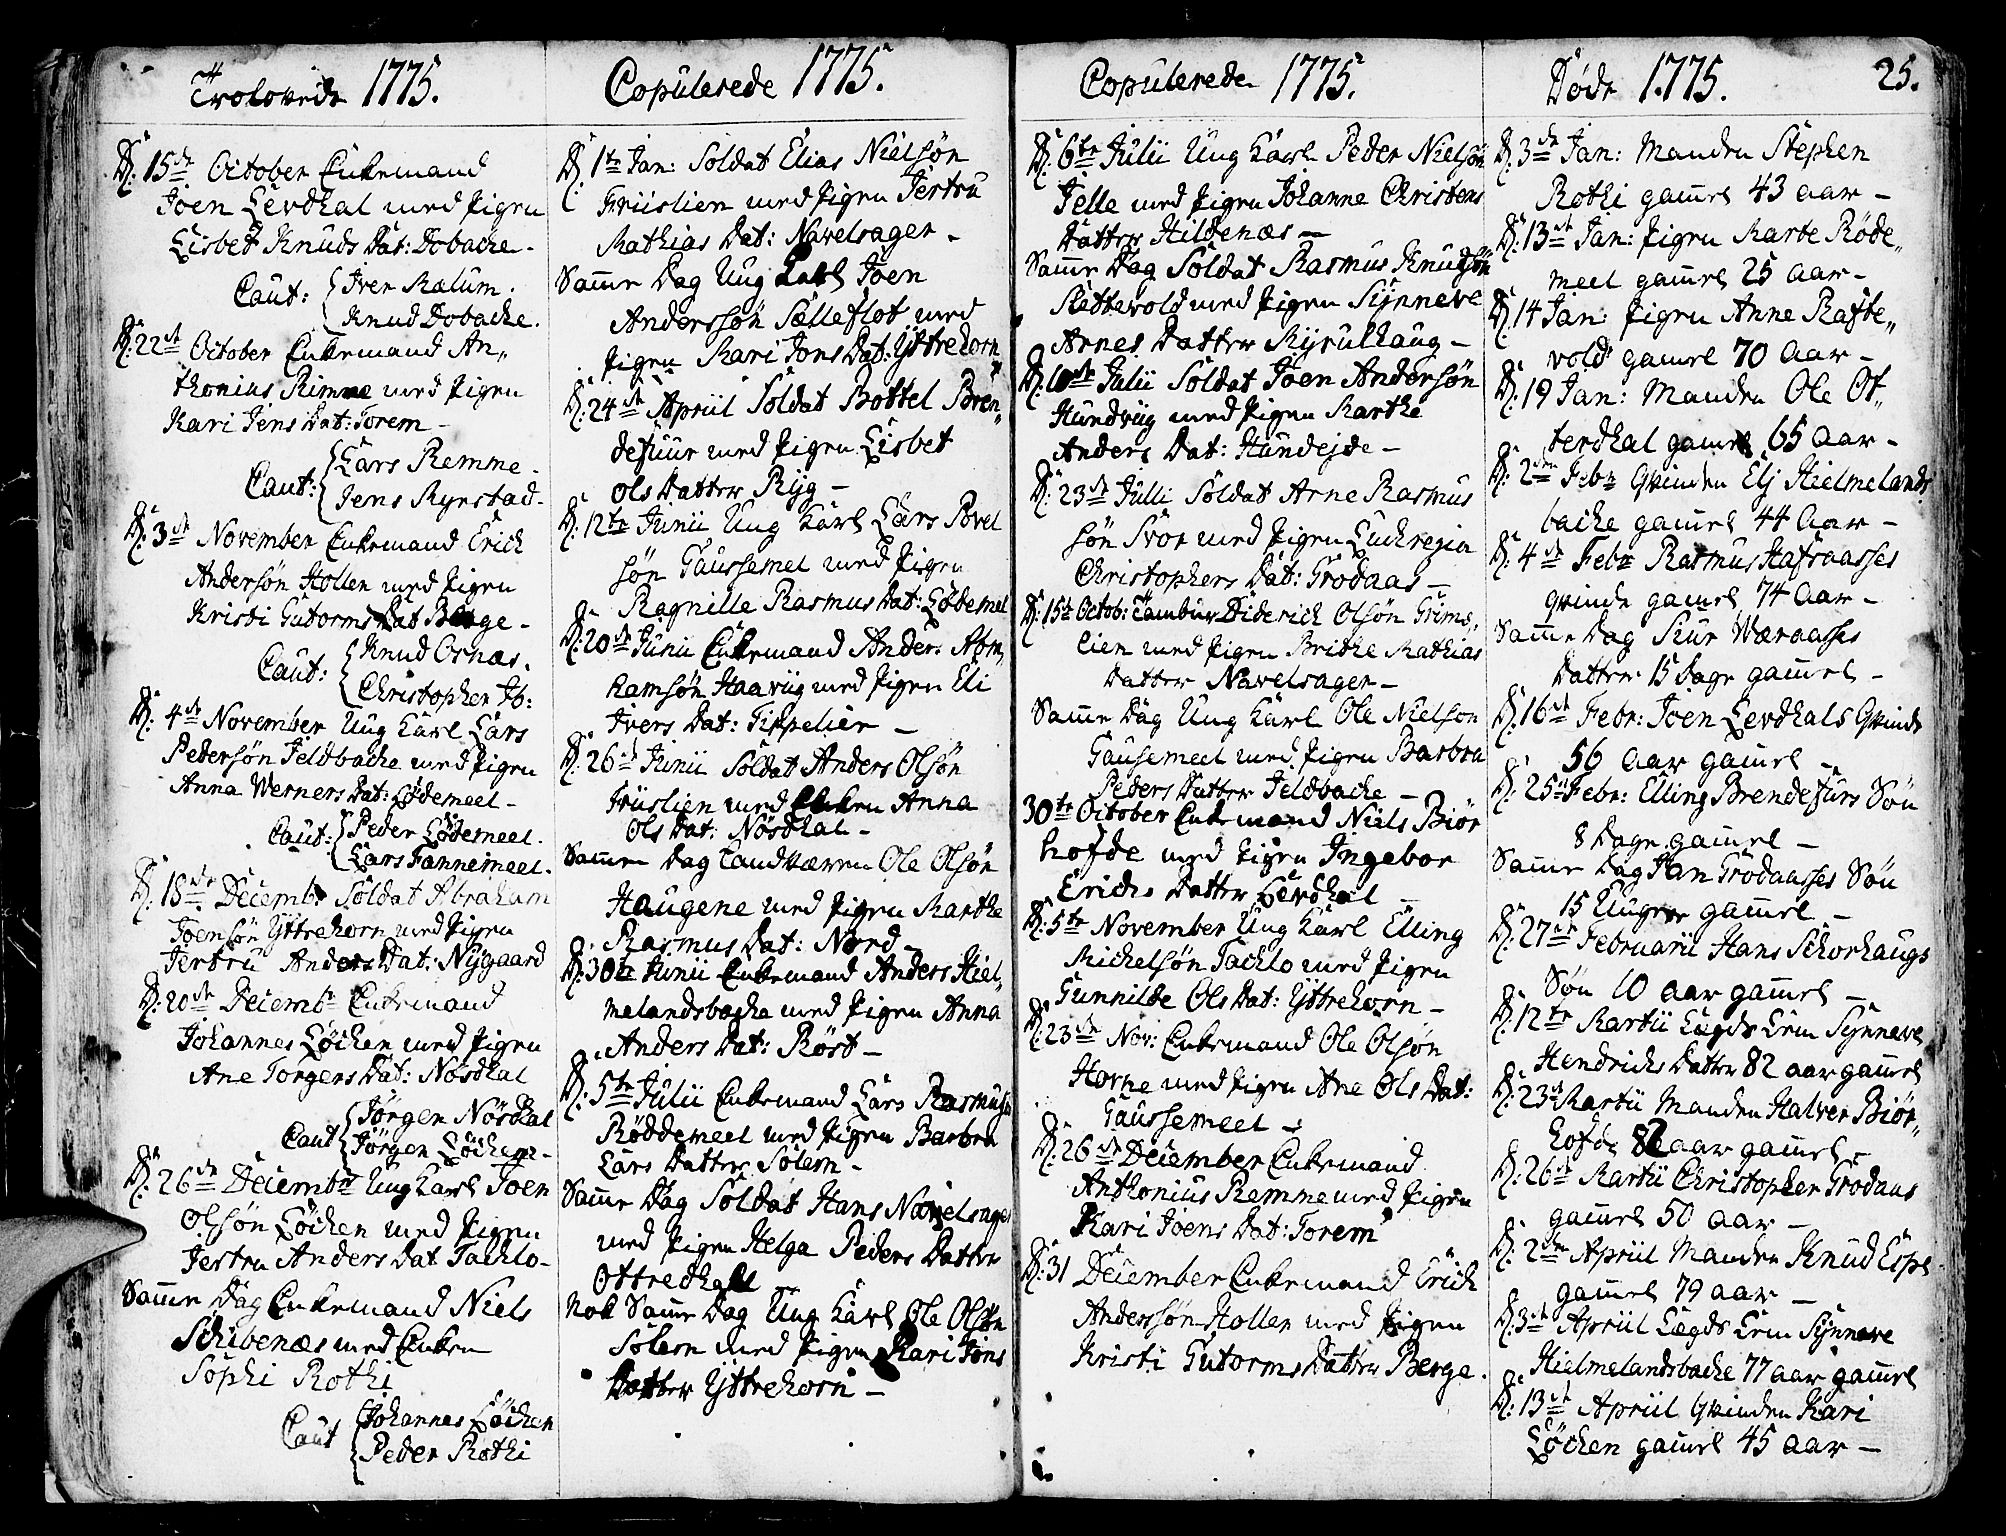 Trolovede 1775.
D: 15de October Enkemand
Joen Levdhal med Pigen
Lisbet Knuds Dat: Dobache -
Caut: Iver Mælum.
Knud Dobache.
D: 22de October Enkemand An„
thonius Rimme med Pigen
Kari Jens Dat: Torem -
Caut: Lars Remme -
Jens Myrstad -
D: 3de November Enkemand Erich
Andersøn Hollen med Pigen
Kristi Gutorms Dat Berge -
Caut: Knud Ornæs.
Christopher Ib:
D: 4de November Ung Karl Lars
Pedersøn Jeldbache med Pigen
Anna Werners Dat: Lødemeel -
Caut: Peder Lødemeel.
Lars Fannemeel.
D: 18de Decembr Soldat Abraham
Joensøn Yttrehorn med Pigen
Jertru Anders Dat: Nygaard
D: 20de Decembr Enkemand
Johannes Løchen med Pigen
Ane Torgers Dat: Nosdhal
Caut Jørgen Nosdhal
Jørgen Løchen -
D: 26de Decembr Ung Karl Joen
Olsøn Løchen med Pigen
Jertru Anders Dat Tachlo -
Samme Dag Enkemand Niels
Schibenæs med Enken
Sophi Rothi
Caut Johannes Løchen
Peder Rothi
Copulerede 1775.
D: 1te Jan: Soldat Elias Nielsøn
Friislien med Pigen Jertru
Mathias Dat: Navelsager -
Samme Dag Ung Karl Joen
Anderssøn Sælleflot med
Pigen Kari Jons Dat: Yttrehorn
D: 24de April Soldat Bottel Bren„
defuur med Pigen Lisbet
Ols Datter Ryg -
D: 12te Junii Ung Karl Lars Povel
søn Gaussemel med Pigen
Ragnille Rasmus Dat: Lødemel
D: 20de Junii Enkemand Anders Abra,
hamsøn Haaviig med Pigen Eli
Ivers Dat: Tippelier -
D: 26de Junii Soldat Anders Olsøn
Friislien med Enken Anna
Ols Dat: Nosdhal -
Samme Dag Landværn Ole Olsøn
Haugene med Pigen Marthe
Rasmus Dat: Nord -
D: 30te Junii Enkemand Anders Hiel„
melandsbache med Pigen Anna
Anders Dat: Røst -
D: 5te Julii Enkemand Lars Rasmusøn
Røddemeel med Pigen Barbra
Lars Datter Solem -
Samme Dag Soldat Hans Navelsager
med Pigen Helga Peders Datter
Ottredhal -
nok Samme Dag Ung Karl Ole Olsøn
Solem med Pigen Kari Jons
Datter Yttrehorn -
Copulerede 1775.
D: 6te Julii Ung Karl Peder Nielsøn
Jelle med Pigen Johanne Christens
Datter Hildenæs -
Samme Dag Soldat Rasmus Knudsøn
Rettevold med Pigen Synneve
Arnes Datter Myrulhaug -
D: 10de Julii Soldat Joen Andersøn
Hundviig med Pigen Marthe
Anders Dat: Hundejde -
D: 23de Julii Soldat Arne Rasmus
søn Svor med Pigen Luchregia
Christophers Dat: Grodaas -
D: 15de Octob: Tambur Diderich Olsøn Grims,
lien med Pigen Brithe Mathias
Datter Navelsager -
Samme Dag Ung Karl Ole Nielson
Gausemeel med Pigen Barbra
Peders Datter Jeldbache -
30te October Enkemand Niels Biør
hofde med Pigen Ingebor
Erichs Datter Levdhal -
D: 5te November Ung Karl Elling
Michelsøn Tachlo med Pigen
Gunnilde Ols Dat: Yttrehorn -
D: 23de Nov: Enkemand Ole Olsøn
Horne med Pigen Ane Ols Dat:
Gaussemeel -
D: 26de December Enkemand
Anthonius Remme med Pigen
Kari Joens Dat: Torem
D: 31 December Enkemand Erich
Anderssøn Hollen med Pigen
Kristi Gutorms Datter Berge.
Døde 1775. 25.
D: 3de Jan: Manden Stephen
Rothi gamel 43 aar -
D: 13de Jan: Pigen Marte Røde„
meel gamel 25 aar -
D: 14 Jan: Pigen Anne Rafte„
vold gamel 70 Aar -
D: 19 Jan: Manden Ole Ot„
terdhal gamel 65 aar -
D: 2den Febr Qvinden Elj Hielmelands
bache gamel 44 Aar -
D: 4de Febr Rasmus Hafraasses
qvinde gamel 74 Aar -
Samme Dag Siur Wæraasses
Datter 15 Dage gamel -
D: 16de Febr: Joen Levdhals Qvinde
56 aar gamel -
D: 25de Febr: Elling Brendefurs Søn
8 Dage gamel -
Samme Dag Jan Grodaasses Søn
15 Uuger gamel -
D: 27de Februarii Hans Schorhaugs
Søn 10 aar gamel -
D: 12te Martii Lægds Lem Synneve
Hendrichs Datter 82 aar gamel
D: 23de Martii Manden Halver Biør„
hofde 82 aar gamel -
D: 26de Martii Christopher Grodaas
gamel 50 aar -
D: 2den April Manden Knud Espe
gamel 79 aar -
D: 3de April Lægds Lem Synneve
Hielmelandsbache 77 aar gamel
D: 13de April Qvinden Kari
Løchen gamel 45 aar -